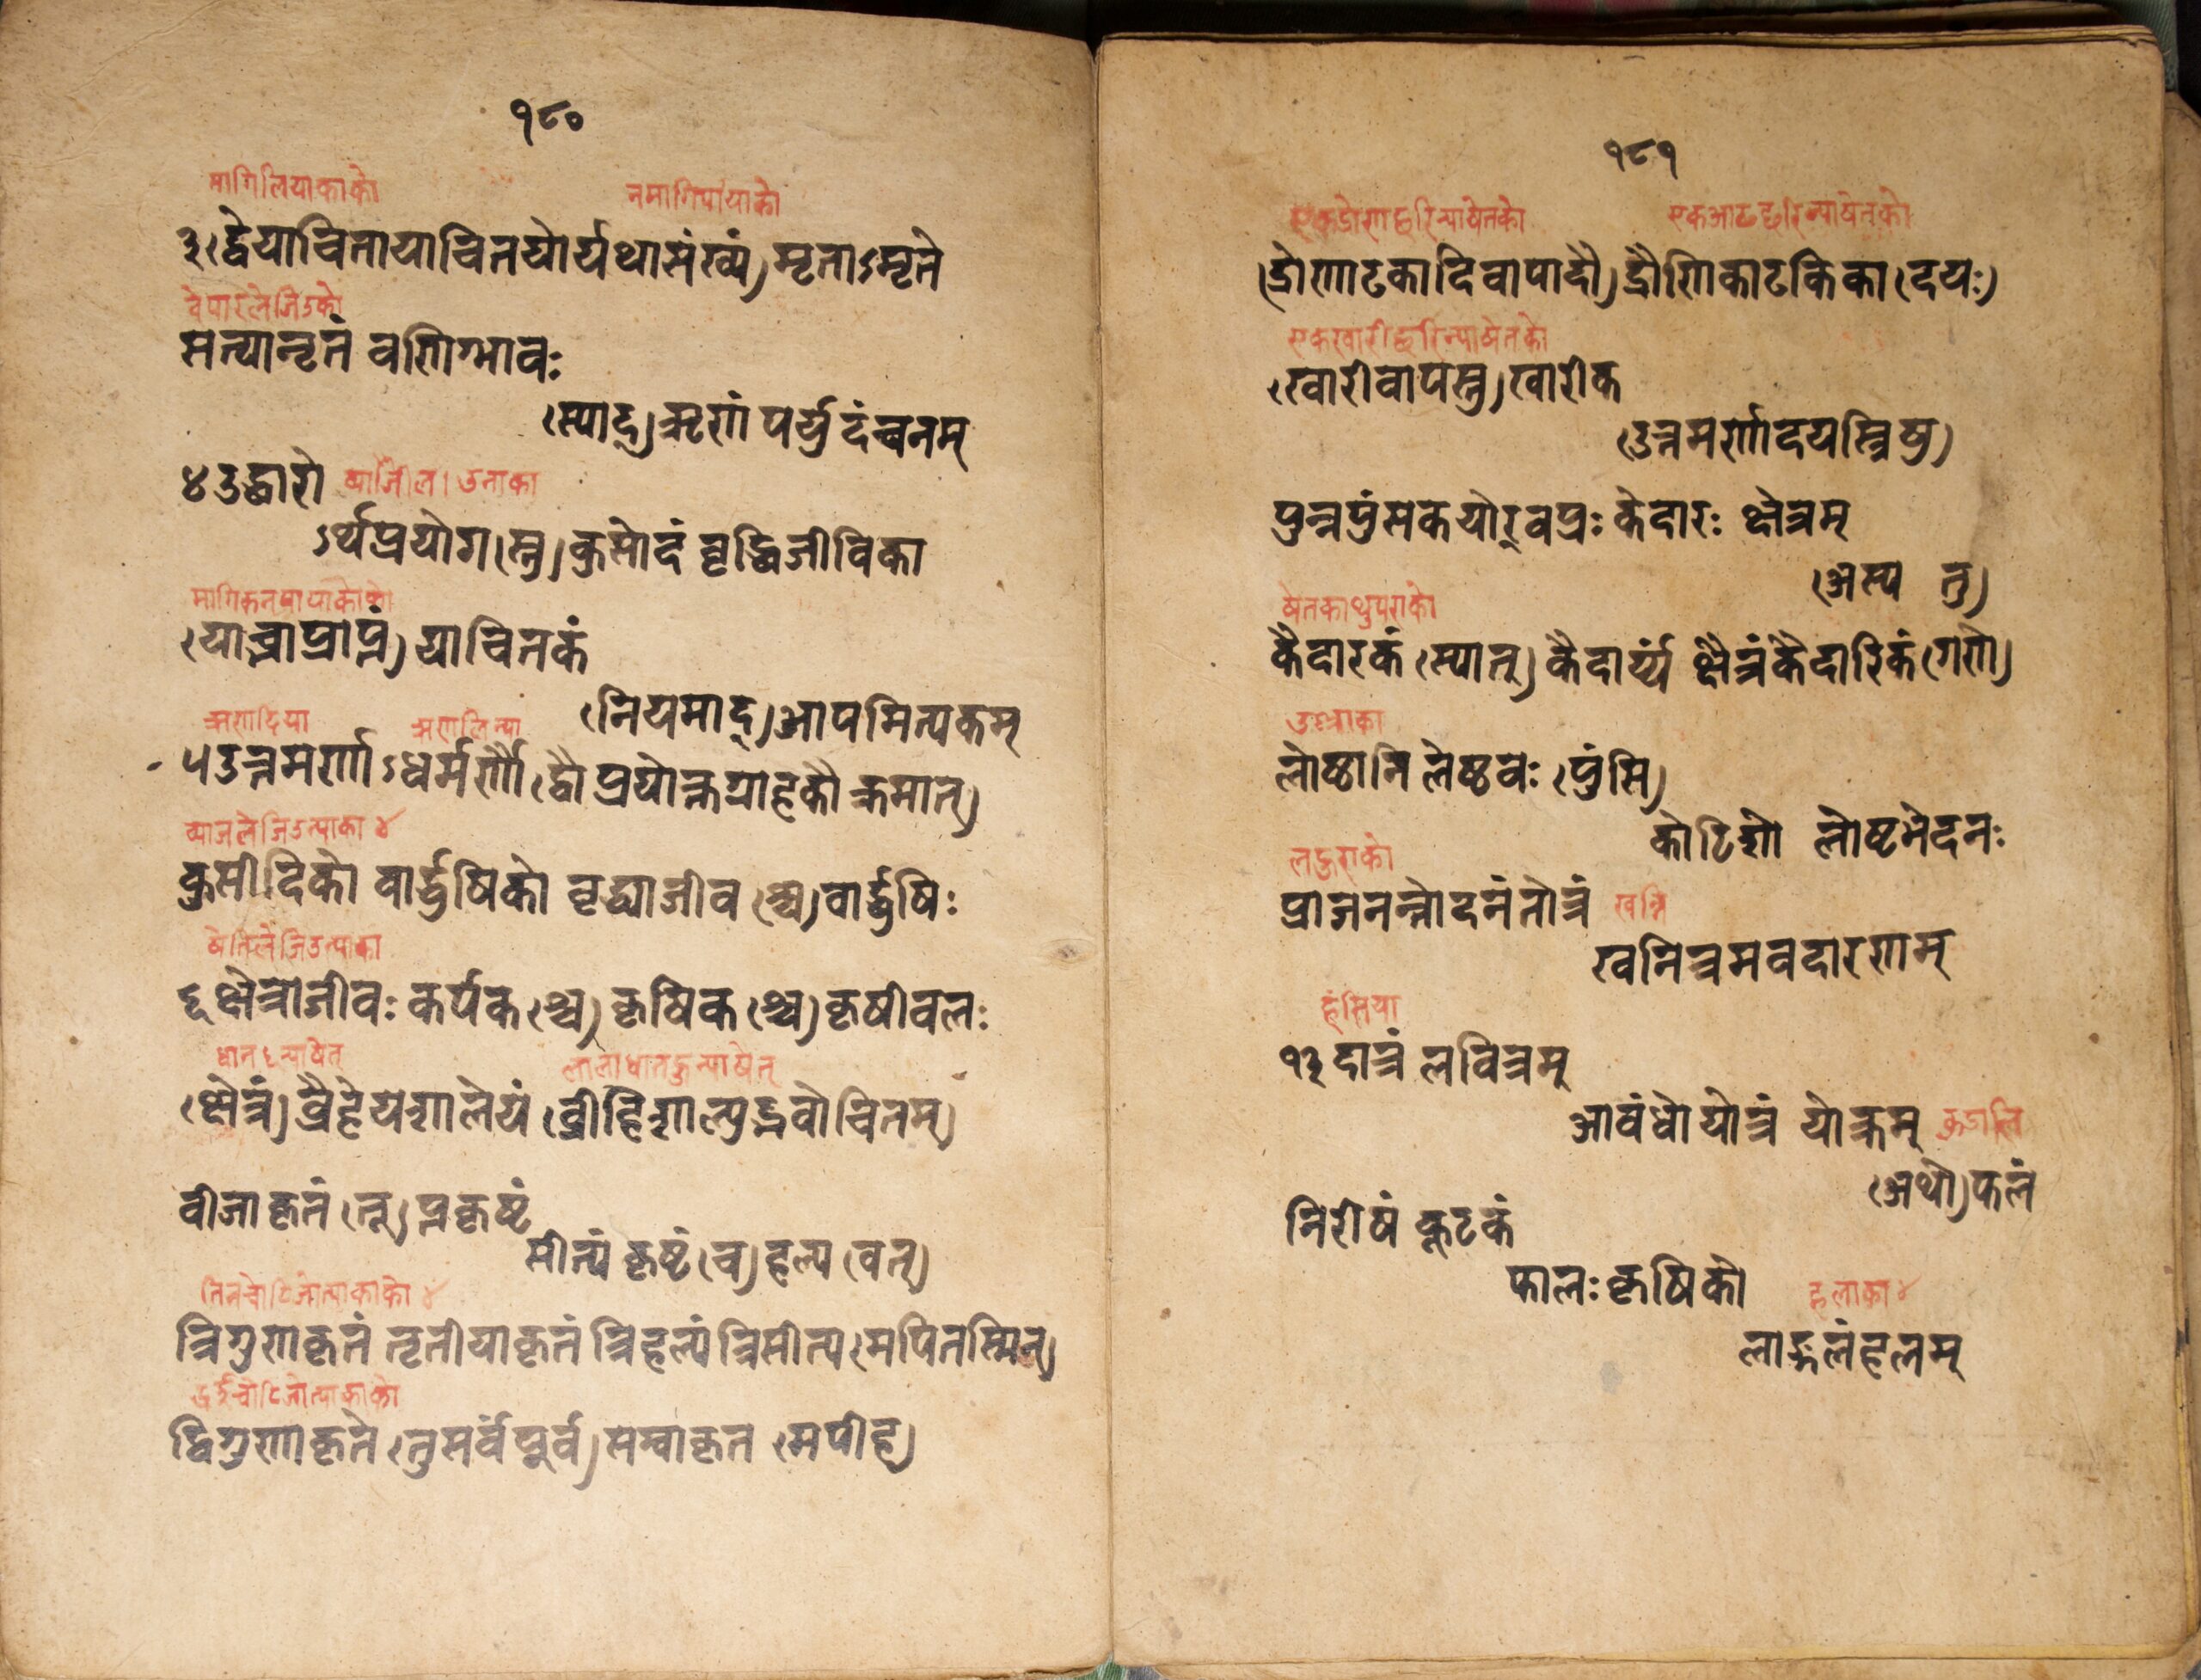 १८०
मागिलियाकाको नमागिपायाको
३(द्वेयाचितायाचितयोर्यथासंख्यं)मृताऽमृते
वेपारलेजिउको
सत्यानृतं वणिग्भावः
(स्याद्)ऋणं पर्युदंचनम्
४उद्धारो
ऽर्थप्रयोग(स्तु)कुसीदं वृद्धिजीविका
(याच्ञाप्राप्तं)याचितकं
(नियमाद्)आपमित्यकम्
ऋणदिया ऋणलिन्या
५उत्तमर्णाऽधमर्णौ(द्वौ प्रयोक्तृग्राहकौ क्रमात्)
व्याजलेजिउन्याका ४
कुसीदिको वार्द्धुषिको वृद्ध्याजीव(श्च)वार्द्धुषिः
षेतिलेजिउन्याका
६क्षेत्राजीवः कर्षक(श्च)कृषिक(श्च)कृषीवलः
धानहुन्याषेत् लालाधानहुन्याषेत्
(क्षेत्रं)व्रैहेयशालेयं(व्रीहिशाल्युद्भवोचितम्)
वीजाकृतं(तू)प्तकृष्टं
सीत्यं कृष्टं(च)हल्य(वत्)
तिनचोटिजोत्याकाको ४
त्रिगुणाकृतं तृतीयाकृतं त्रिहल्यं त्रिसीत्य(मपितस्मिन्)
दुईचोटिजोत्याकाको
द्विगुणाकृते(तुसर्वंपूर्वं)सम्वाकृत(मपीह)
१८१
एकद्रोणछरिन्याषेतको एकआढछरिन्याषेतको
(द्रोणाढकादिवापादौ)द्रौणिकाढकिका(दयः)
एकखारीछरिन्याषेतको
(खारीवापस्तु)खारीक
(उत्तमर्णादयस्त्रिषु)
पुन्नपुंसकयोर्वप्रः केदारः क्षेत्रम्
(अस्य तु)
षेतकाथुप्राको
कैदारकं(स्यात्)कैदार्य्यं क्षैत्रंकैदारिकं(गणे)
लोष्ठानि लेष्ठवः(पुंसि)
कोटिशो लोष्टभेदनः
प्राजनन्तोदनंतोत्रं खन्ति
खनित्रमवदारणम्
हंसिया
१३दात्रं लवित्रम्
आवंधो योत्रं योक्त्रम्
(अथो)फलं
निरीषं कूटकं
फालः कृषिको हलाका ४
लाङ्गलंहलम्